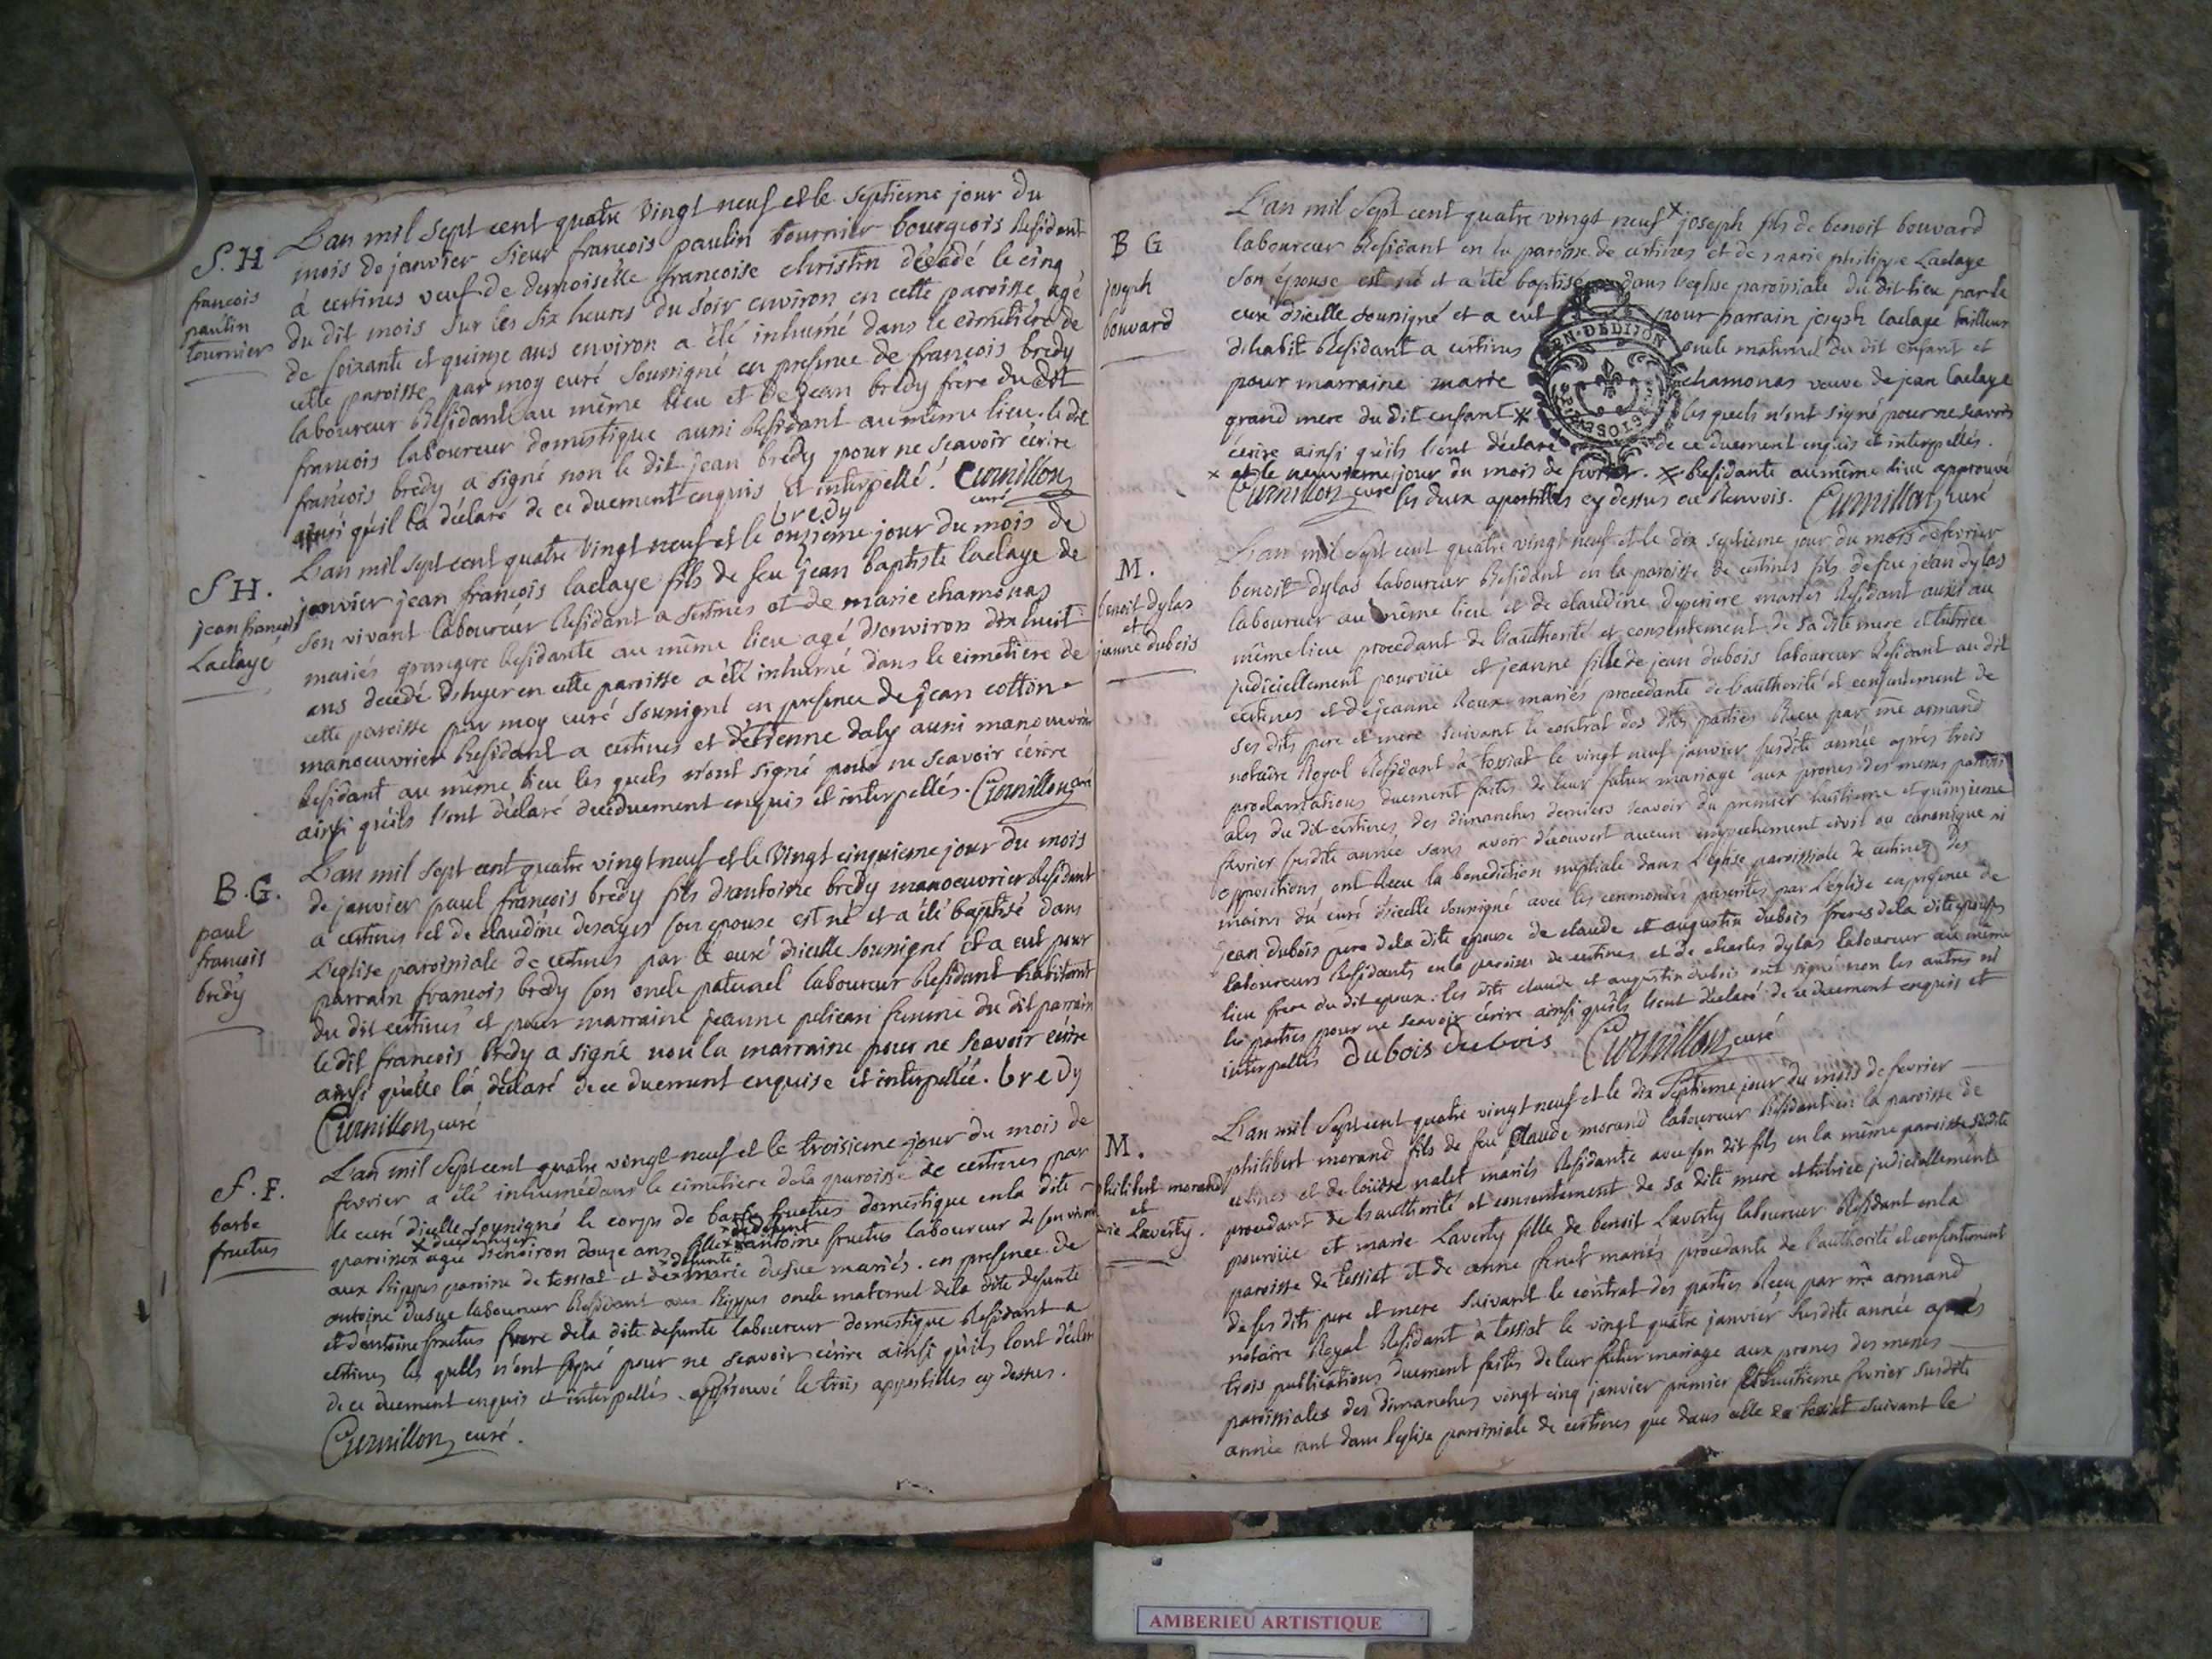 S. H
francois
paulin
tournier
L'an mil sept cent quatre vingt neuf et le septieme jour du
mois de janvier sieur francois paulin tournier bourgeois Residant
à certines veuf de demoiselle francoise christin décédé le cinq
du dit mois sur les six heures du soir environ en cette paroisse agé
de soixante et quinze ans environ a été inhumé dans le cimetiere de
cette paroisse par moy curé soussigné en presence de francois bredy
laboureur Residant au même lieu et de jean bredy frere du dit
francois laboureur domestique aussi Residant au même lieu. le dit
françois bredy a signé non le dit jean bredy pour ne scavoir écrire
ainsi qu'il l'a déclaré de ce duement enquis et interpellé. Curnillon
bredy curé
S H.
jean françois
Laclaye
L'an mil sept cent quatre vingt neuf et le onzieme jour du mois de
janvier jean françois laclaye fils de feu jean baptiste laclaye de
son vivant laboureur Residant a sertines et de marie chamonas
mariés grangere Residante au même lieu agé d'environ dix huit
ans decedé d'hyer en cette paroisse a été inhumé dans le cimetiere de
cette paroisse par moy curé soussigné en presence de jean cotton
manoeuvrier Residant a certines et d'étienne daly aussi manouvrier
Residant au même lieu les quels n'ont signé pour ne scavoir écrire
ainsi qu'ils l'ont déclaré de ce duement enquis et interpellés. Curnillon curé
B. G.
paul
francois
bredy
L'an mil sept cent quatre vingt neuf et le vingt cinquieme jour du mois
de janvier paul françois bredy fils d'antoine bredy manoeuvrier Residant
a certines et de claudine desayes son epouse est né et a été baptisé dans
L'eglise paroissiale de certines par le curé d'icelle soussigné et a eut pour
parrain francois bredy son oncle paternel laboureur Residant habitant
du dit certines et pour marraine jeanne pelican femme du dit parrain
le dit francois bredy a signé non la marraine pour ne scavoir ecrire
ainsi qu'elle l'a déclaré de ce duement enquise et interpellée. bredy
Curnillon curé
S. F.
barbe
fructus
L'an mil sept cent quatre vingt neuf et le troisieme jour du mois de
fevrier a été inhumé dans le cimetiere de la paroisse de certines par
le curé d'icelle soussigné le corps de barbe fructus domestique en la dite
paroisse x agée d'environ douze ans fille x antoine fructus laboureur de son vivant
aux Rippes paroisse de tossiat et de x marie dusue mariés. en presence de
antoine dusue laboureur Residant aux Rippes oncle maternel de la dite defunte
et d'antoine fructus frere de la dite defunte laboureur domestique Residant a
certines les quels n'ont signé pour ne scavoir écrire ainsi qu'ils l'ont déclaré
de ce duement enquis et interpellés. approuvé le trois appostilles cy dessus.
Curnillon curé.
B G
joseph
bouvard
L'an mil sept cent quatre vingt neuf x joseph fils de benoit bouvard
laboureur Residant en la paroisse de certines et de marie philippe Laclaye
son épouse est né et a été baptisé dans l'eglise paroissiale du dit lieu par le
curé d'icelle soussigné et a eut pour parrain joseph laclaye tailleur
d'habit Residant a certines oncle maternel du dit enfant et
pour marraine marie chamonas veuve de jean laclaye
grand mere du dit enfant x les quels n'ont signé pour ne scavoir
écrire ainsi qu'ils l'ont déclaré de ce duement enquis et interpellés.
x et le neuvieme jour du mois de fevrier. x Residante au même lieu approuvé
Curnillon curé les deux apostilles cy dessus en Renvois. Curnillon curé
M.
benoit dylas
et
jeanne dubois
L'an mil sept cent quatre vingt neuf et le dix septieme jour du mois de fevrier
benoit dylas laboureur Residant en la paroisse de certines fils de feu jean dylas
laboureur au même lieu et de claudine mariés Residant aussi au
même lieu procedant de l'authorité et consentement de sa dite mere et tutrice
judiciellement pourvûe et jeanne fille de jean dubois laboureur Residant au dit
certines et de jeanne Roux mariés procedante de l'authorité et consentement de
ses dits pere et mere suivant le contrat des dits parties Recu par me armand
notaire Royal Residant à tossiat le vingt neuf janvier susdite année après trois
proclamations duement faites de leur futur mariage aux prones des messes paroissi
ales du dit certines des dimanches derniers scavoir du premier huitieme et quinzieme
fevrier susdite année sans avoir découvert aucun empechement civil ou canonique ni
oppositions ont Recu la benediction nuptiale dans L'eglise paroissiale de certines des
mains du curé d'icelle soussigné avec les ceremonies prescrites par L'eglise en presence de
jean dubois pere de la dite epouse de claude et augustin dubois freres de la dite epouse
laboureurs Residants en la paroisse de certines et de charles dylas laboureur au même
lieu frere du dit epoux. les dits claude et augustin dubois ont signé non les autres ni
les parties pour ne scavoir écrire ainsi qu'ils l'ont déclaré de ce duement enquis et
interpellés dubois dubois Curnillon curé
M.
philibert morand
et
marie Laverty.
L'an mil sept cent quatre vingt neuf et le dix septieme jour du mois de fevrier
philibert morand fils de feu claude morand laboureur Residant en la paroisse de
certines et de louise nalet mariés Residante avec son dit fils en la même paroisse sudite
procedant de l'authorité et consentement de sa dite mere et tutrice judiciellement
pourvûe et marie Laverty fille de benoit Laverty laboureur Residant en la
paroisse de tossiat et de anne mariés procedante de l'authorité et consentement
de ses dits pere et mere suivant le contrat des parties Recu par me armand
notaire Royal Residant à tossiat le vingt quatre janvier susdite année après
trois publications duement faites de leur futur mariage aux prones des messes
paroissiales des dimanches vingt cinq janvier premier et huitieme fevrier susdite
année tant dans l'eglise paroissiale de certines que dans celle de tossiat suivant le
AMBERIEU ARTISTIQUE